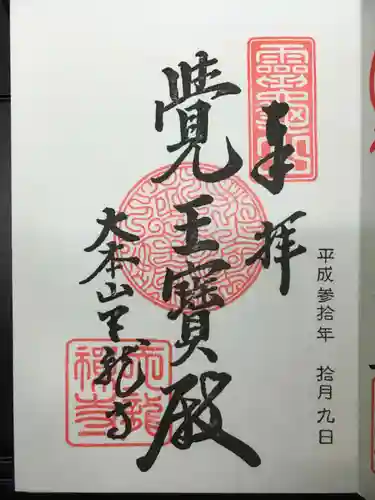 奉拝
平成参拾年 拾月九日
覺王寶殿
大本山天龍寺